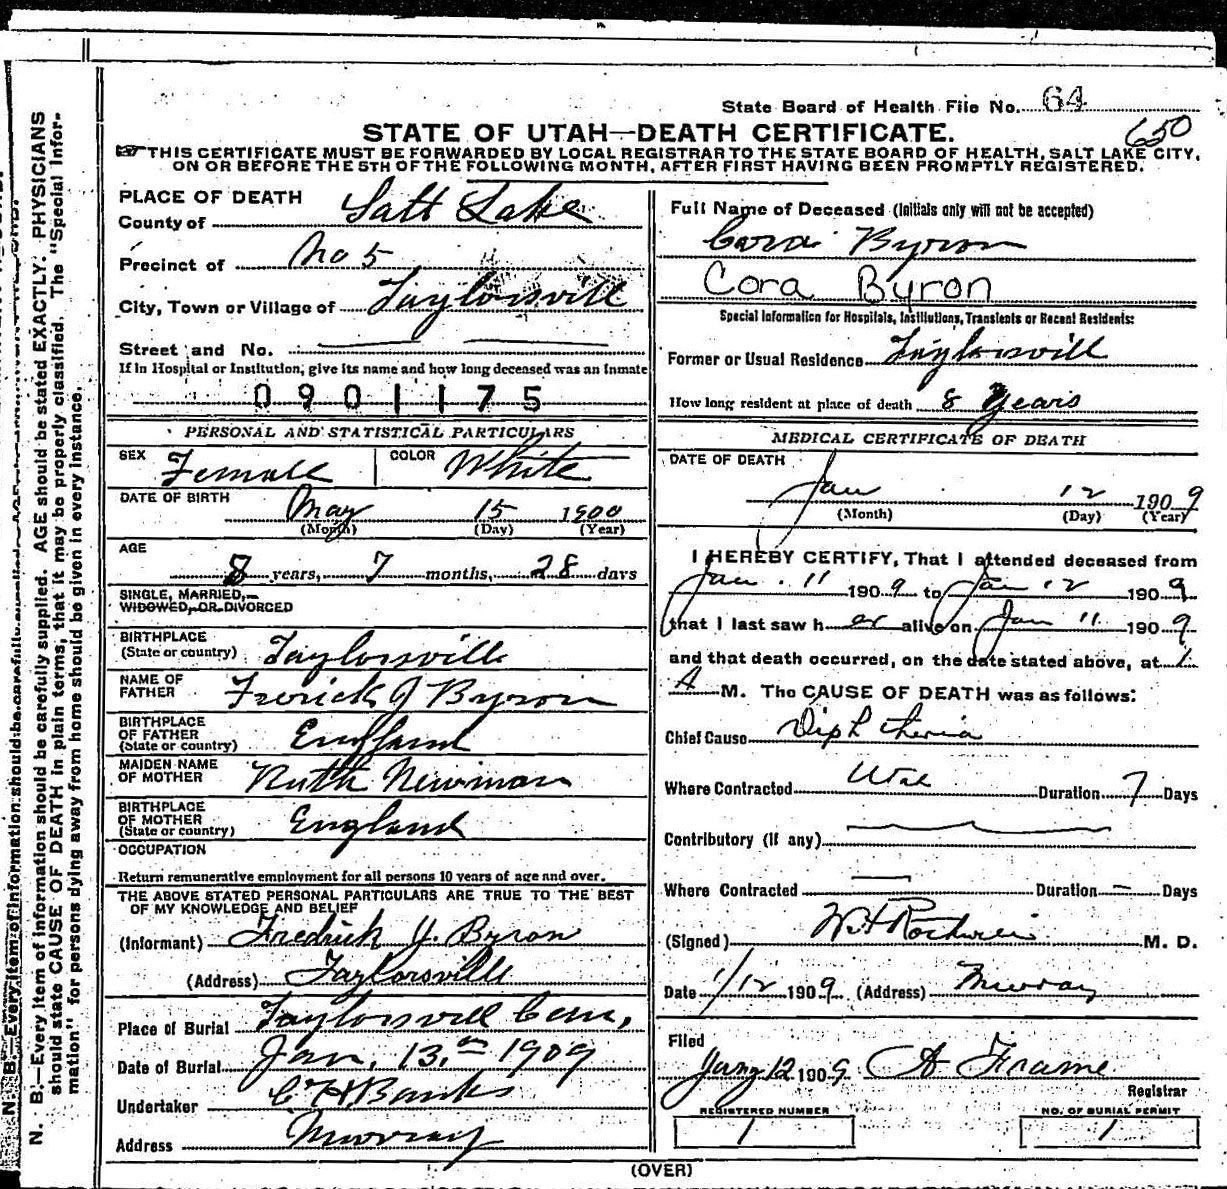 State Board of Health File No. 64
650
STATE OF UTAH—DEATH CERTIFICATE.
☞THIS CERTIFICATE MUST BE FORWARDED BY LOCAL REGISTRAR TO THE STATE BOARD OF HEALTH, SALT LAKE CITY,
ON OR BEFORE THE 5TH OF THE FOLLOWING MONTH, AFTER FIRST HAVING BEEN PROMPTLY REGISTERED.
PLACE OF DEATH
County of Salt Lake
Precinct of No 5
City, Town or Village of Taylorsvill
Street and No.
If in Hospital or Institution, give its name and how long deceased was an Inmate
0901175
PERSONAL AND STATISTICAL PARTICULARS
SEX Female COLOR White
DATE OF BIRTH May 15 1900
(Month) (Day) (Year)
AGE
8 years, 7 months, 28 days
SINGLE, MARRIED,
WIDOWED, OR DIVORCED
BIRTHPLACE
(State or country) Taylorsville
NAME OF
FATHER Frerick J Byron
BIRTHPLACE
OF FATHER
(State or country) England
MAIDEN NAME
OF MOTHER Ruth Newman
BIRTHPLACE
OF MOTHER
(State or country) England
OCCUPATION
Return remunerative employment for all persons 10 years of age and over.
THE ABOVE STATED PERSONAL PARTICULARS ARE TRUE TO THE BEST
OF MY KNOWLEDGE AND BELIEF
(Informant) Fredrick J. Byron
(Address) Taylorsville
Place of Burial Taylorsvill Cem,
Date of Burial Jan, 13,th 1909
Undertaker C H Banks
Address Murray
Full Name of Deceased (Initials only will not be accepted)
Cora Byron
Cora Byron
Special Information for Hospitals, Institutions, Transients or Recent Residents:
Former or Usual Residence Taylorsvill
How long resident at place of death 8 Years
MEDICAL CERTIFICATE OF DEATH
DATE OF DEATH
Jan 12 1909
(Month) (Day) (Year)
I HEREBY CERTIFY, That I attended deceased from
Jan. 11 1909 to Jan 12 1909
that I last saw her alive on Jan 11 1909
and that death occurred, on the date stated above, at 1
A M. The CAUSE OF DEATH was as follows:
Chief Cause Diphtheria
Where Contracted Utah Duration 7 Days
Contributory (if any)
Where Contracted — Duration — Days
(Signed) M. D.
Date 1/12 1909 (Address) Murray
Filed
Jany 12 1909 A Frame
Registrar
REGISTERED NUMBER
1
NO. OF BURIAL PERMIT
1
(OVER)
N. B.—Every item of information should be carefully supplied. AGE should be stated EXACTLY. PHYSICIANS
should state CAUSE OF DEATH in plain terms, that it may be properly classified. The "Special Infor-
mation" for persons dying away from home should be given in every instance.